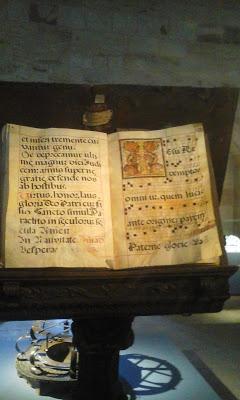 et infera tremente cur
vantur genu.
Te deprecamur ulti
me magnus dies Judi
cem: armis superne
gratie defende nos
ab hostibus.
Virtus, honor, laus,
gloria Deo Patri cum
filio Sancto simul Pa
raclito in seculorum se
cula Amen
In Nativitate
Vespera
Iesu Re
demptor
omnium, quem luci
ante originem parem
Paterne glorie